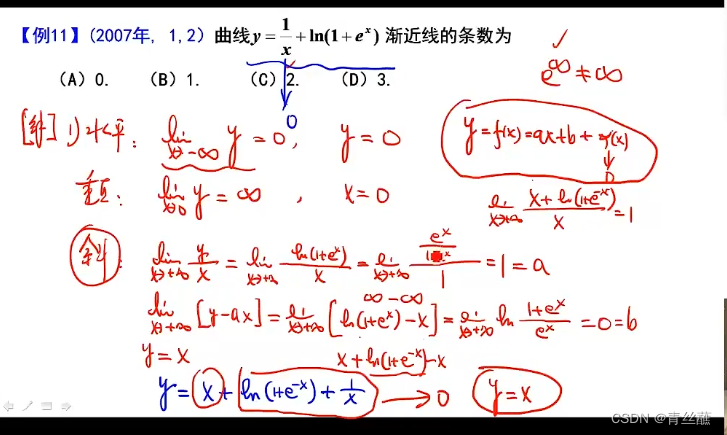 【例11】(2007年, 1,2) 曲线 y = 1/x + ln(1+e^x) 渐近线的条数为
(A) 0. (B) 1. (C) 2. (D) 3.
e^∞ ≠ ∞
0
[解] 1) 水平: lim x→-∞ y = 0, y = 0
y = f(x) = ax+b + α(x)
0
垂直: lim x→0 y = ∞, x = 0
lim x→+∞ (x + ln(1+e^-x))/x = 1
斜: lim x→+∞ y/x = lim x→+∞ ln(1+e^x)/x = lim x→+∞ (e^x/(1+e^x))/1 = 1 = a
∞-∞
lim x→+∞ [y-ax] = lim x→+∞ [ln(1+e^x)-x] = lim x→+∞ ln (1+e^x)/e^x = 0 = b
y = x x+ln(1+e^-x)-x
y = x + ln(1+e^-x) + 1/x → 0 y = x
CSDN @青丝蘸